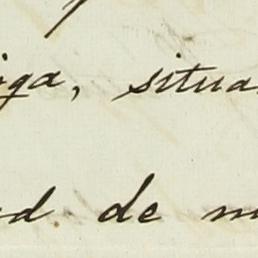 iga, situa
ad de m